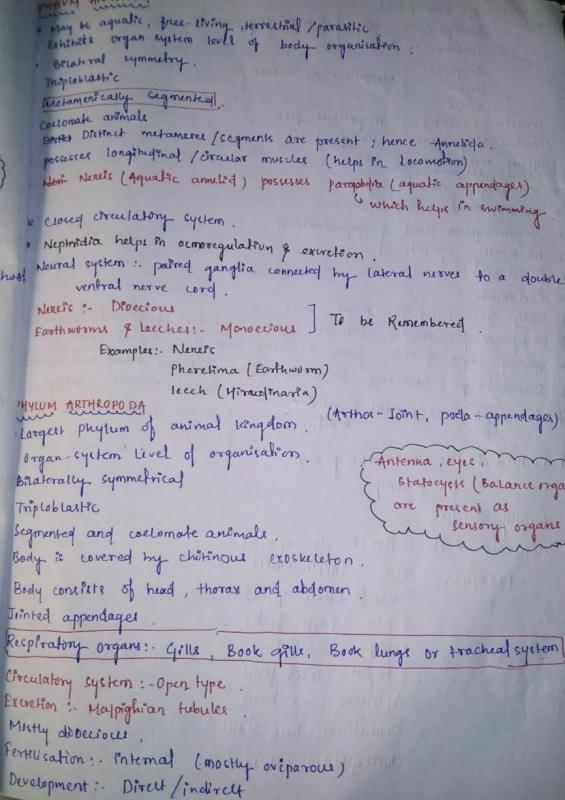 PHYLUM
May be aquatic, free-living, terrestrial / parasitic
Exhibits organ system level of body organisation.
Bilateral symmetry.
Triploblastic
Metamerically segmented.
Coelomate animals
Distinct metameres / segments are present ; hence Annelida.
possesses longitudinal / circular muscles (helps in locomotion)
Nereis (Aquatic annelid) possesses parapodia (aquatic appendages)
↳ which helps in swimming.
Closed circulatory system.
Nephridia helps in osmoregulation & excretion.
Neural system :- paired ganglia connected by lateral nerves to a double
ventral nerve cord.
Nereis :- Dioecious
Earthworms & Leeches:- Monoecious ] To be Remembered.
Examples:- Nereis
Pheretima (Earthworm)
leech (Hirudinaria)
PHYLUM ARTHROPODA
(Arthos-Joint, poda-appendages)
Largest phylum of animal kingdom.
Organ-system level of organisation.
Bilaterally symmetrical
Triploblastic
Segmented and coelomate animals.
Body is covered by chitinous exoskeleton.
Body consists of head, thorax and abdomen.
Jointed appendages.
Antenna, eyes,
Statocysts (Balance orga
are present as
sensory organs
Respiratory organs:- Gills, Book gills, Book lungs or tracheal system
Circulatory system :- Open type.
Excretion :- Malpighian tubules.
Mostly dioecious.
Fertilisation :- internal (mostly oviparous)
Development :- Direct / indirect